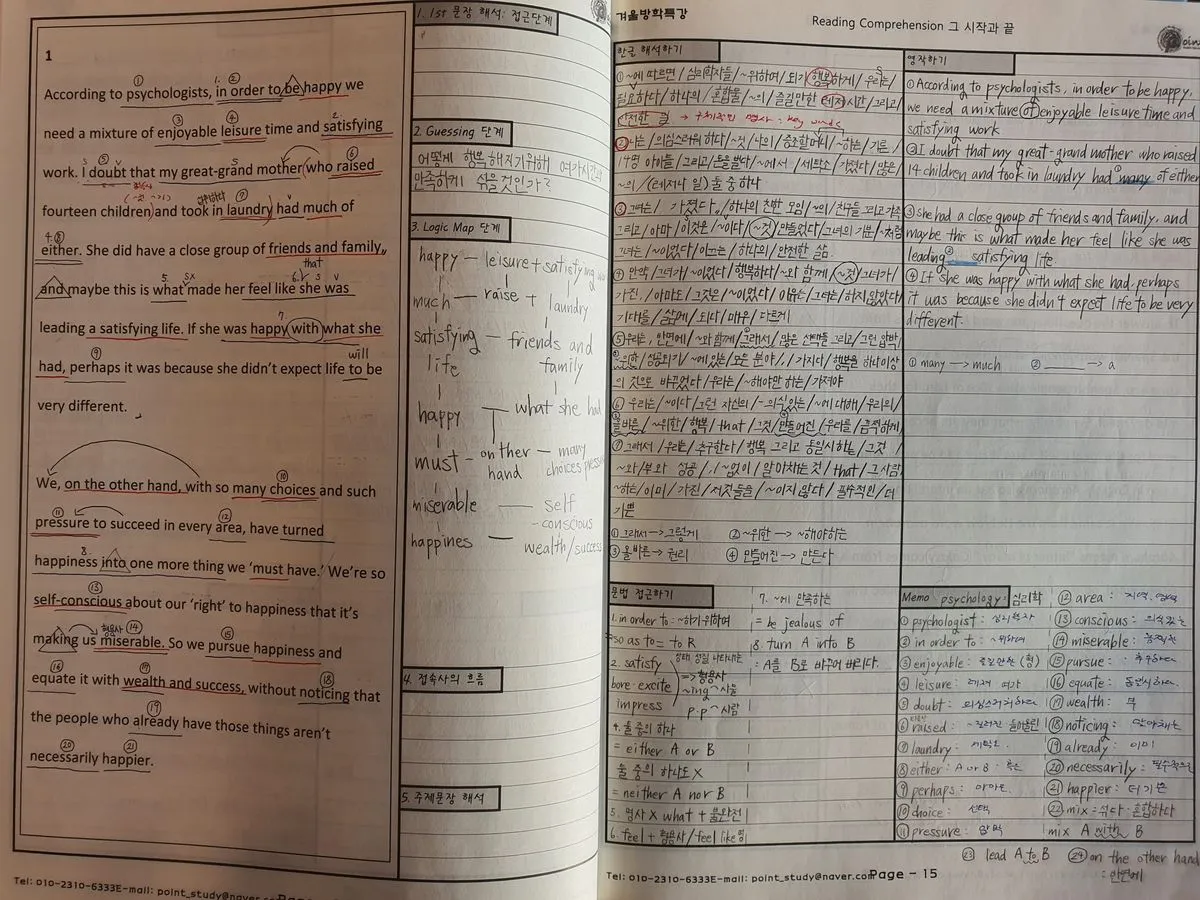 1
According to psychologists, in order to be happy we
need a mixture of enjoyable leisure time and satisfying
work. I doubt that my great-grand mother who raised
fourteen children and took in laundry had much of
either. She did have a close group of friends and family,
that
and maybe this is what made her feel like she was
leading a satisfying life. If she was happy with what she
will
had, perhaps it was because she didn't expect life to be
very different.
We, on the other hand, with so many choices and such
pressure to succeed in every area, have turned
happiness into one more thing we 'must have.' We're so
self-conscious about our 'right' to happiness that it's
형용사
making us miserable. So we pursue happiness and
equate it with wealth and success, without noticing that
the people who already have those things aren't
necessarily happier.
1. 1st 문장 해석: 접근단계
2. Guessing 단계
어떻게 행복해지기위해 여가시간과
만족하게 쉬을것인가?
3. Logic Map 단계
happy — leisure + satisfying
much — raise + laundry
satisfying — friends and
life family
happy — what she had
must — on ther — many
hand choices pressure
miserable — self
-conscious
happines — wealth/success
4. 접속사의 흐름
5. 주제문장 해석
Tel: 010-2310-6333E-mail: point_study@naver.com
겨울방학특강
Reading Comprehension 그 시작과 끝
한글 해석하기
① ~에 따르면 / 심리학자들 / ~위하여 / 되기 행복하게 / 우리는 /
필요하다 / 하나의 / 혼합물 / ~의 / 즐길만한 레저시간 / 그리고 /
② 나는 / 의심스러워 하다 / ~것 / 나의 / 증조할머니 / ~하는 / 기른 /
14명 아이들 / 그리고 / 돈을 벌다 / ~에서 / 세탁소 / 가졌다 / 많은
~의 / (레저나 일) 둘 중 하나
③ 그녀는 / 가졌다 / 하나의 친한 모임 / ~의 / 친구들 그리고 가족
그리고 / 아마 / 이것은 / ~이다 / ~것 / 만들었다 / 그녀의 기분 / ~처럼
그녀는 / ~이었다 / 이끄는 / 하나의 / 안전한 삶.
④ 만약 / 그녀가 / ~이었다 / 행복하다 / ~와 함께 / ~것 / 그녀가 /
가진, / 아마도 / 그것은 / ~이었다 / 이유는 / 그녀는 / 하지 않았다 /
기대를 / 삶에 / 되다 / 매우 / 다르게
⑤ 우리는, 반면에 / ~와 함께 / 그래서 / 많은 선택들 그리고 / 그런 압박
위한 / 성공하기 / ~에 있는 / 모든 분야, / 가지다 / 행복을 하나이상
의 것으로 바꾸었다 / 우리는 / ~해야만 하는 / 가져야
⑥ 우리는 / ~이다 / 그런 자신의 / -의식있는 / ~에 대해 / 우리의 /
올바른 / ~위한 / 행복 / that / 그것 / 만들어진 / 우리를 / 끔찍하게
⑦ 그래서 / 우리는 / 추구한다 / 행복 그리고 동일시하는 / 그것
~와 / 부와 성공 / , / ~없이 / 알아차리는 것 / that / 그 사람
~하는 / 이미 / 가진 / 저것들을 / ~이지 않다 / 필수적인 / 더
기쁜
① 그래서 → 그렇게 ② ~위한 → ~해야하는
③ 올바른 → 권리 ④ 만들어진 → 만든다
영작하기
① According to psychologists, in order to be happy,
we need a mixture of enjoyable leisure time and
satisfying work
② I doubt that my great-grand mother who raised
14 children and took in laundry had many of either
③ She had a close group of friends and family, and
maybe this is what made her feel like she was
leading ___ satisfying life
④ If she was happy with what she had, perhaps
it was because she didn't expect life to be very
different.
① many → much ② ___ → a
문법 접근하기
1. in order to: ~하기 위하여
= so as to = to R
2. satisfy 상태 성질 나타내는
bore·excite => 형용사
impress ~ing ~ 사물
p.p ~ 사람
4. 둘 중의 하나
= either A or B
둘 중의 하나도 X
= neither A nor B
5. 명사 X what + 불완전
6. feel + 형용사 / feel like 명
7. ~에 만족하는
= be jealous of
8. turn A into B
= A를 B로 바꾸어 버리다.
Memo psychology: 심리학
① psychologist: 심리학자
② in order to: ~위하여
③ enjoyable: 즐길만한 (형)
④ leisure: 레저 여가
⑤ doubt: 의심스러워하다
⑥ raised:
⑦ laundry: 세탁소
⑧ either: A or B : 혹은
⑨ perhaps: 아마도
⑩ choice: 선택
⑪ pressure: 압박
⑫ area: 지역, 영역
⑬ conscious: 의식있는
⑭ miserable: 끔찍한
⑮ pursue: 추구하다
⑯ equate: 동일시하다
⑰ wealth: 부
⑱ noticing: 알아채는
⑲ already: 이미
⑳ necessarily: 필수적으로
㉑ happier: 더 기쁜
㉒ mix: 섞다·혼합하다
mix A with B
㉓ lead A to B ㉔ on the other hand
: 반면에
Tel: 010-2310-6333E-mail: point_study@naver.com Page - 15